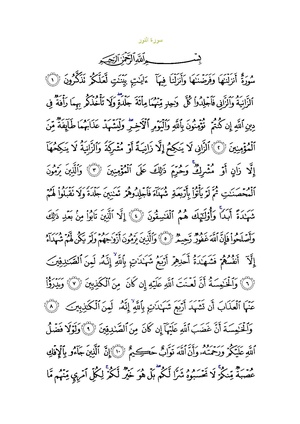 سورة النور
بِسْمِ اللَّهِ الرَّحْمَٰنِ الرَّحِيمِ
سُورَةٌ أَنزَلْنَٰهَا وَفَرَضْنَٰهَا وَأَنزَلْنَا فِيهَآ ءَايَٰتٍۭ بَيِّنَٰتٍ لَّعَلَّكُمْ تَذَكَّرُونَ ١
ٱلزَّانِيَةُ وَٱلزَّانِى فَٱجْلِدُوا۟ كُلَّ وَٰحِدٍ مِّنْهُمَا مِا۟ئَةَ جَلْدَةٍ وَلَا تَأْخُذْكُم بِهِمَا رَأْفَةٌ فِى
دِينِ ٱللَّهِ إِن كُنتُمْ تُؤْمِنُونَ بِٱللَّهِ وَٱلْيَوْمِ ٱلْءَاخِرِ وَلْيَشْهَدْ عَذَابَهُمَا طَآئِفَةٌ مِّنَ
ٱلْمُؤْمِنِينَ ٢ ٱلزَّانِى لَا يَنكِحُ إِلَّا زَانِيَةً أَوْ مُشْرِكَةً وَٱلزَّانِيَةُ لَا يَنكِحُهَآ
إِلَّا زَانٍ أَوْ مُشْرِكٌ وَحُرِّمَ ذَٰلِكَ عَلَى ٱلْمُؤْمِنِينَ ٣ وَٱلَّذِينَ يَرْمُونَ
ٱلْمُحْصَنَٰتِ ثُمَّ لَمْ يَأْتُوا۟ بِأَرْبَعَةِ شُهَدَآءَ فَٱجْلِدُوهُمْ ثَمَٰنِينَ جَلْدَةً وَلَا تَقْبَلُوا۟ لَهُمْ
شَهَٰدَةً أَبَدًا وَأُو۟لَٰٓئِكَ هُمُ ٱلْفَٰسِقُونَ ٤ إِلَّا ٱلَّذِينَ تَابُوا۟ مِنۢ بَعْدِ ذَٰلِكَ
وَأَصْلَحُوا۟ فَإِنَّ ٱللَّهَ غَفُورٌ رَّحِيمٌ ٥ وَٱلَّذِينَ يَرْمُونَ أَزْوَٰجَهُمْ وَلَمْ يَكُن لَّهُمْ شُهَدَآءُ
إِلَّآ أَنفُسُهُمْ فَشَهَٰدَةُ أَحَدِهِمْ أَرْبَعُ شَهَٰدَٰتٍۭ بِٱللَّهِ إِنَّهُۥ لَمِنَ ٱلصَّٰدِقِينَ
٦ وَٱلْخَٰمِسَةُ أَنَّ لَعْنَتَ ٱللَّهِ عَلَيْهِ إِن كَانَ مِنَ ٱلْكَٰذِبِينَ ٧ وَيَدْرَؤُا۟
عَنْهَا ٱلْعَذَابَ أَن تَشْهَدَ أَرْبَعَ شَهَٰدَٰتٍۭ بِٱللَّهِ إِنَّهُۥ لَمِنَ ٱلْكَٰذِبِينَ ٨
وَٱلْخَٰمِسَةَ أَنَّ غَضَبَ ٱللَّهِ عَلَيْهَآ إِن كَانَ مِنَ ٱلصَّٰدِقِينَ ٩ وَلَوْلَا فَضْلُ
ٱللَّهِ عَلَيْكُمْ وَرَحْمَتُهُۥ وَأَنَّ ٱللَّهَ تَوَّابٌ حَكِيمٌ ١٠ إِنَّ ٱلَّذِينَ جَآءُو بِٱلْإِفْكِ
عُصْبَةٌ مِّنكُمْ لَا تَحْسَبُوهُ شَرًّا لَّكُم بَلْ هُوَ خَيْرٌ لَّكُمْ لِكُلِّ ٱمْرِئٍ مِّنْهُم مَّا